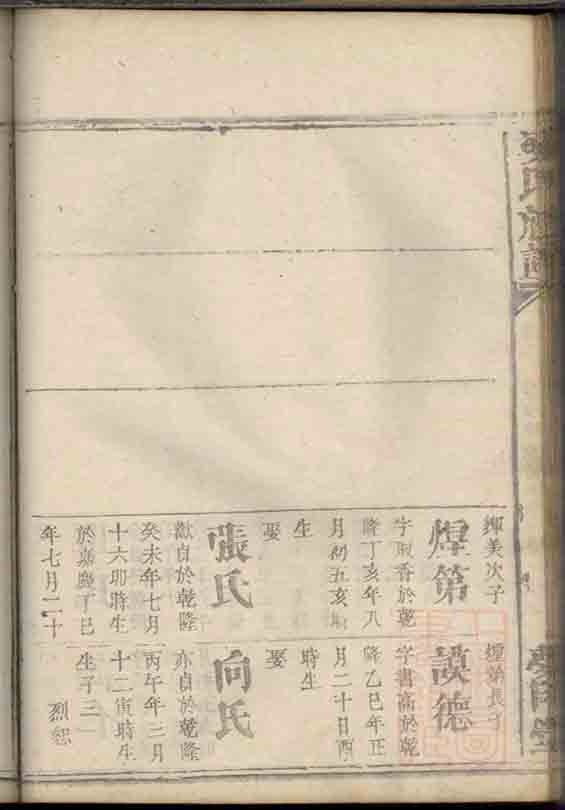 氏族譜
輝美次子
煌第
字殿香於乾
隆丁亥年八
月初五亥時
生
娶
張氏
歿自於乾隆
癸未年七月
十六卯時生
於嘉慶丁巳
年七月二十
煌弟長子
謨德
字書高於乾
隆乙巳年正
月二十日酉
時生
娶
向氏
亦自於乾隆
丙午年三月
十二寅時生
生子三
烈恕